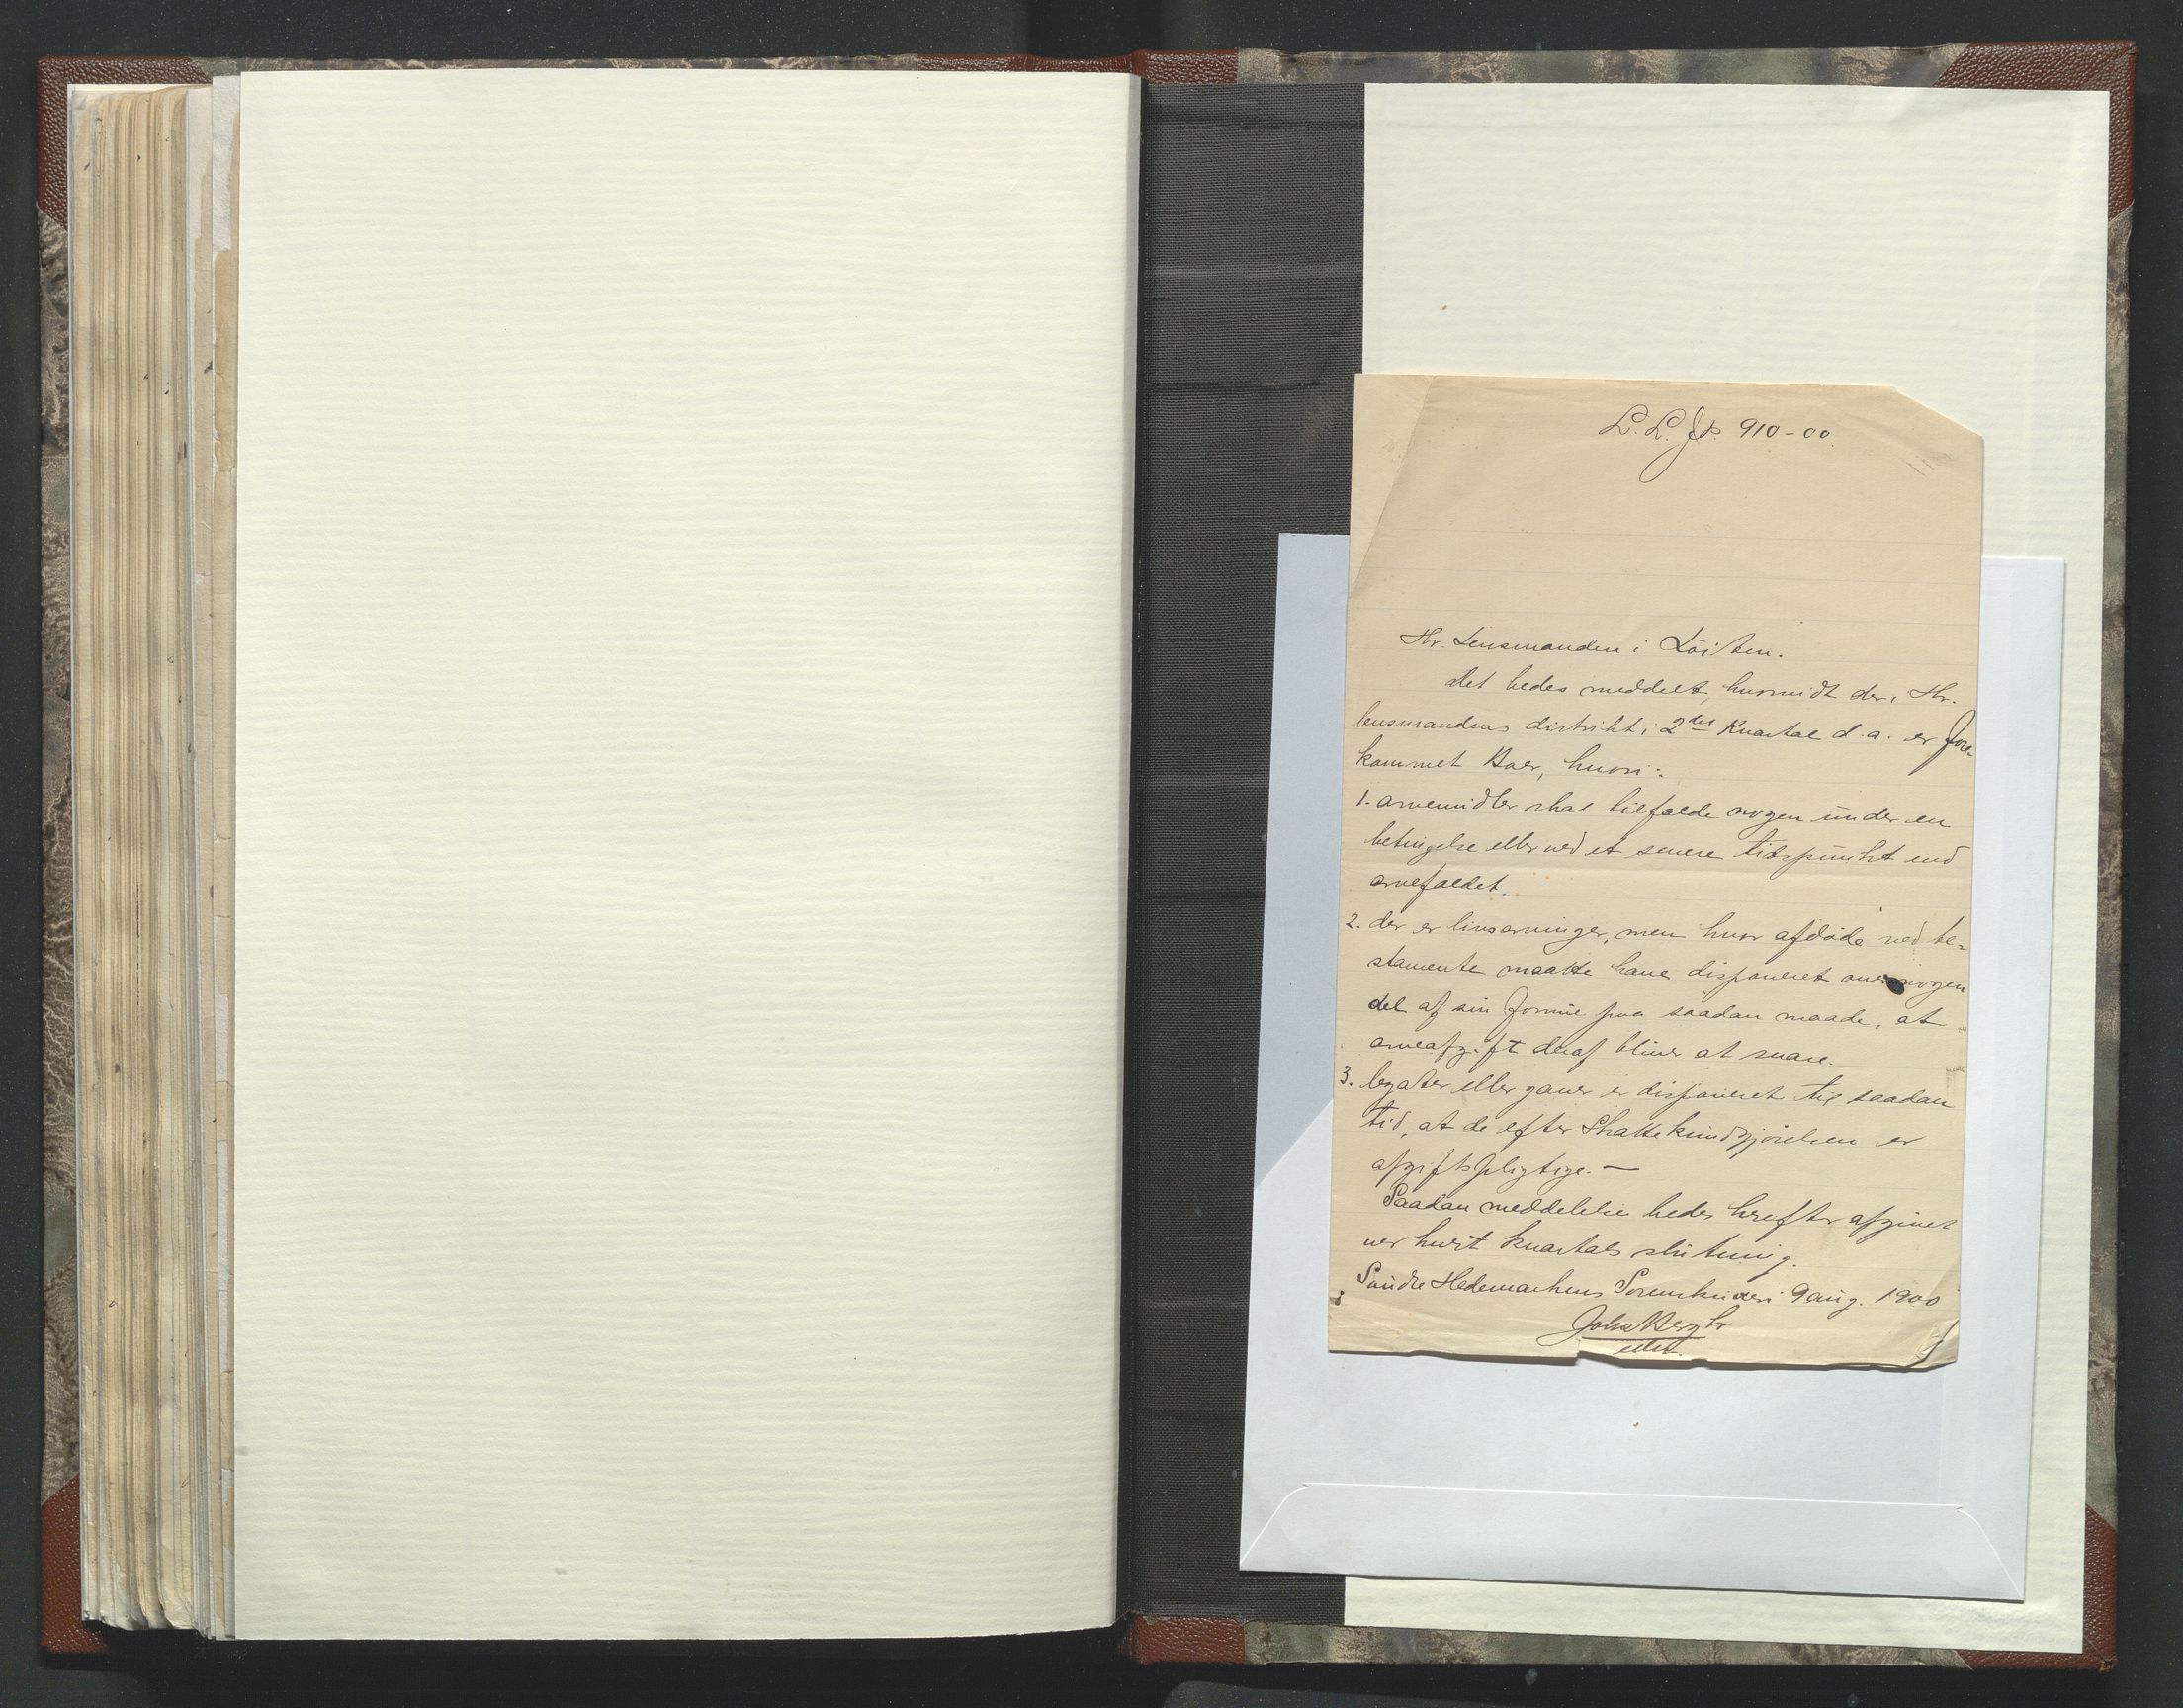 L. L. Jr. 910-00.
Hr. Lensmanden i Löiten.
Det bedes meddelt, hvorvidt der i Hr.
lensmandens distrikt i 2det Kvartal d. a. er fore-
kommet Boer, hvori:
1. arvemidler skal tilfalde nogen under en
betingelse eller ved et senere tidspunkt end
arvefaldet.
2. der er livsarvinger, men hvor afdöde ved te=
stamente maatte have disponeret over nogen
del af sin formue paa saadan maade, at
arveafgift deraf bliver at svare.
3. legater eller gaver er disponeret til saadan
tid, at de efter Skattekundgjörelsen er
afgiftspligtige. —
Saadan meddelelse bedes herefter afgivet
ved hvert kvartals slutning.
Söndre Hedemarkens Sorenskriveri 9 aug. 1900
Johs Bergh